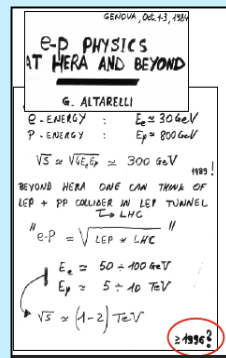 GENOVA, Oct. 1-3, 1984
e-p PHYSICS
AT HERA AND BEYOND
G. ALTARELLI
e-ENERGY : Ee ≃ 30 GeV
P-ENERGY : Ep ≃ 800 GeV
√S ≃ √4EeEp ≃ 300 GeV
1989!
BEYOND HERA ONE CAN THINK OF
LEP + PP COLLIDER IN LEP TUNNEL
↳ LHC
"e-P = √LEP × LHC"
Ee ≃ 50 ÷ 100 GeV
Ep ≃ 5 ÷ 10 TeV
√S ≃ (1-2) TeV
≥1996?